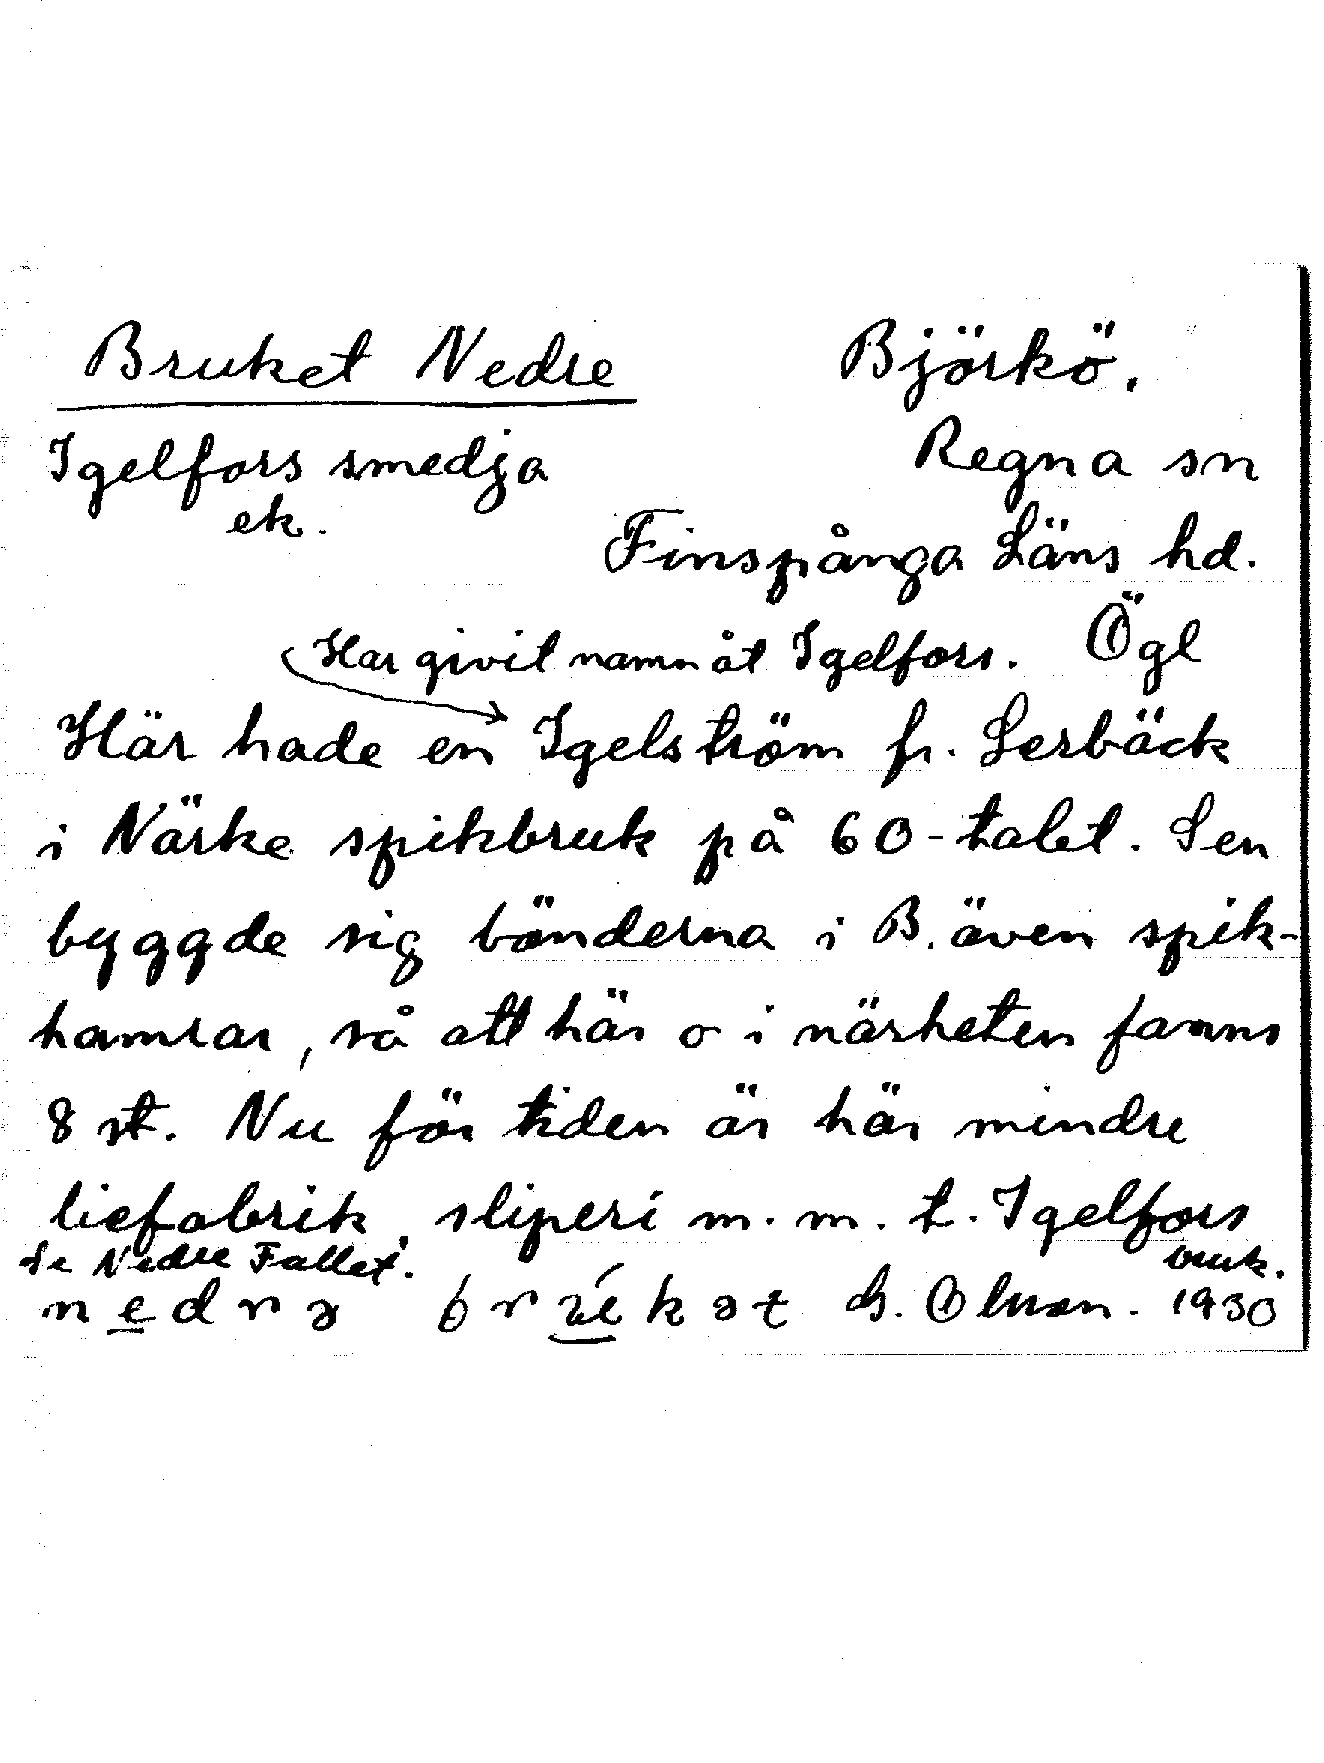 Bruket Nedre
Björkö.
Igelfors smedja
Regna sn
ek.
Finspånga Läns hd.
Har givit namn åt Igelfors.
Ögl
Här hade en Igelström fr. Lerbäck
i Närke spikbruk på 60-talet. Sen
byggde sig bönderna i B. även spik-
hamrar, så att här o i närheten fanns
8 st. Nu för tiden är här mindre
liefabrik, sliperi m.m. t. Igelfors
bruk.
Se Nedre Fallet.
nedrə brʉ́kət G. Olsson. 1930